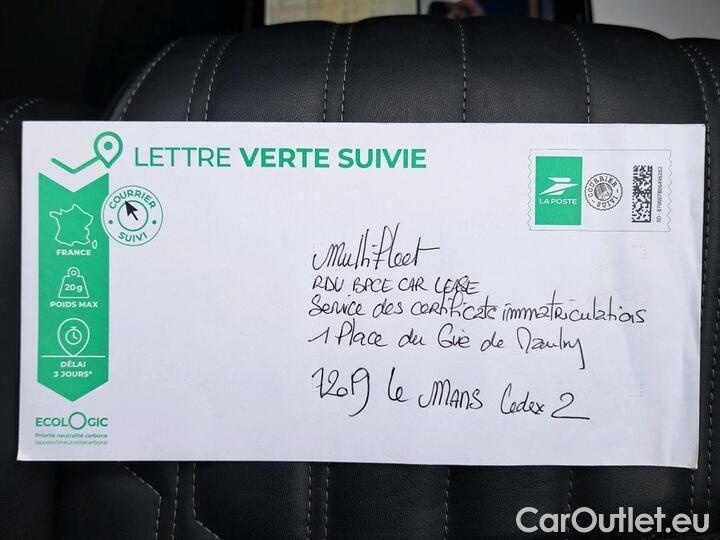 LETTRE VERTE SUIVIE
COURRIER SUIVI
FRANCE
20g
POIDS MAX
DÉLAI
3 JOURS*
ECOLOGIC
Priorité neutralité carbone
laposte.fr/neutralitecarbone
LA POSTE
COURRIER SUIVI
SD: 870007806496262
MultiFleet
RDU BPCE CAR LEASE
Service des certificats immatriculations
1 Place du Gué de Maulny
72019 Le MANS Cedex 2
CarOutlet.eu